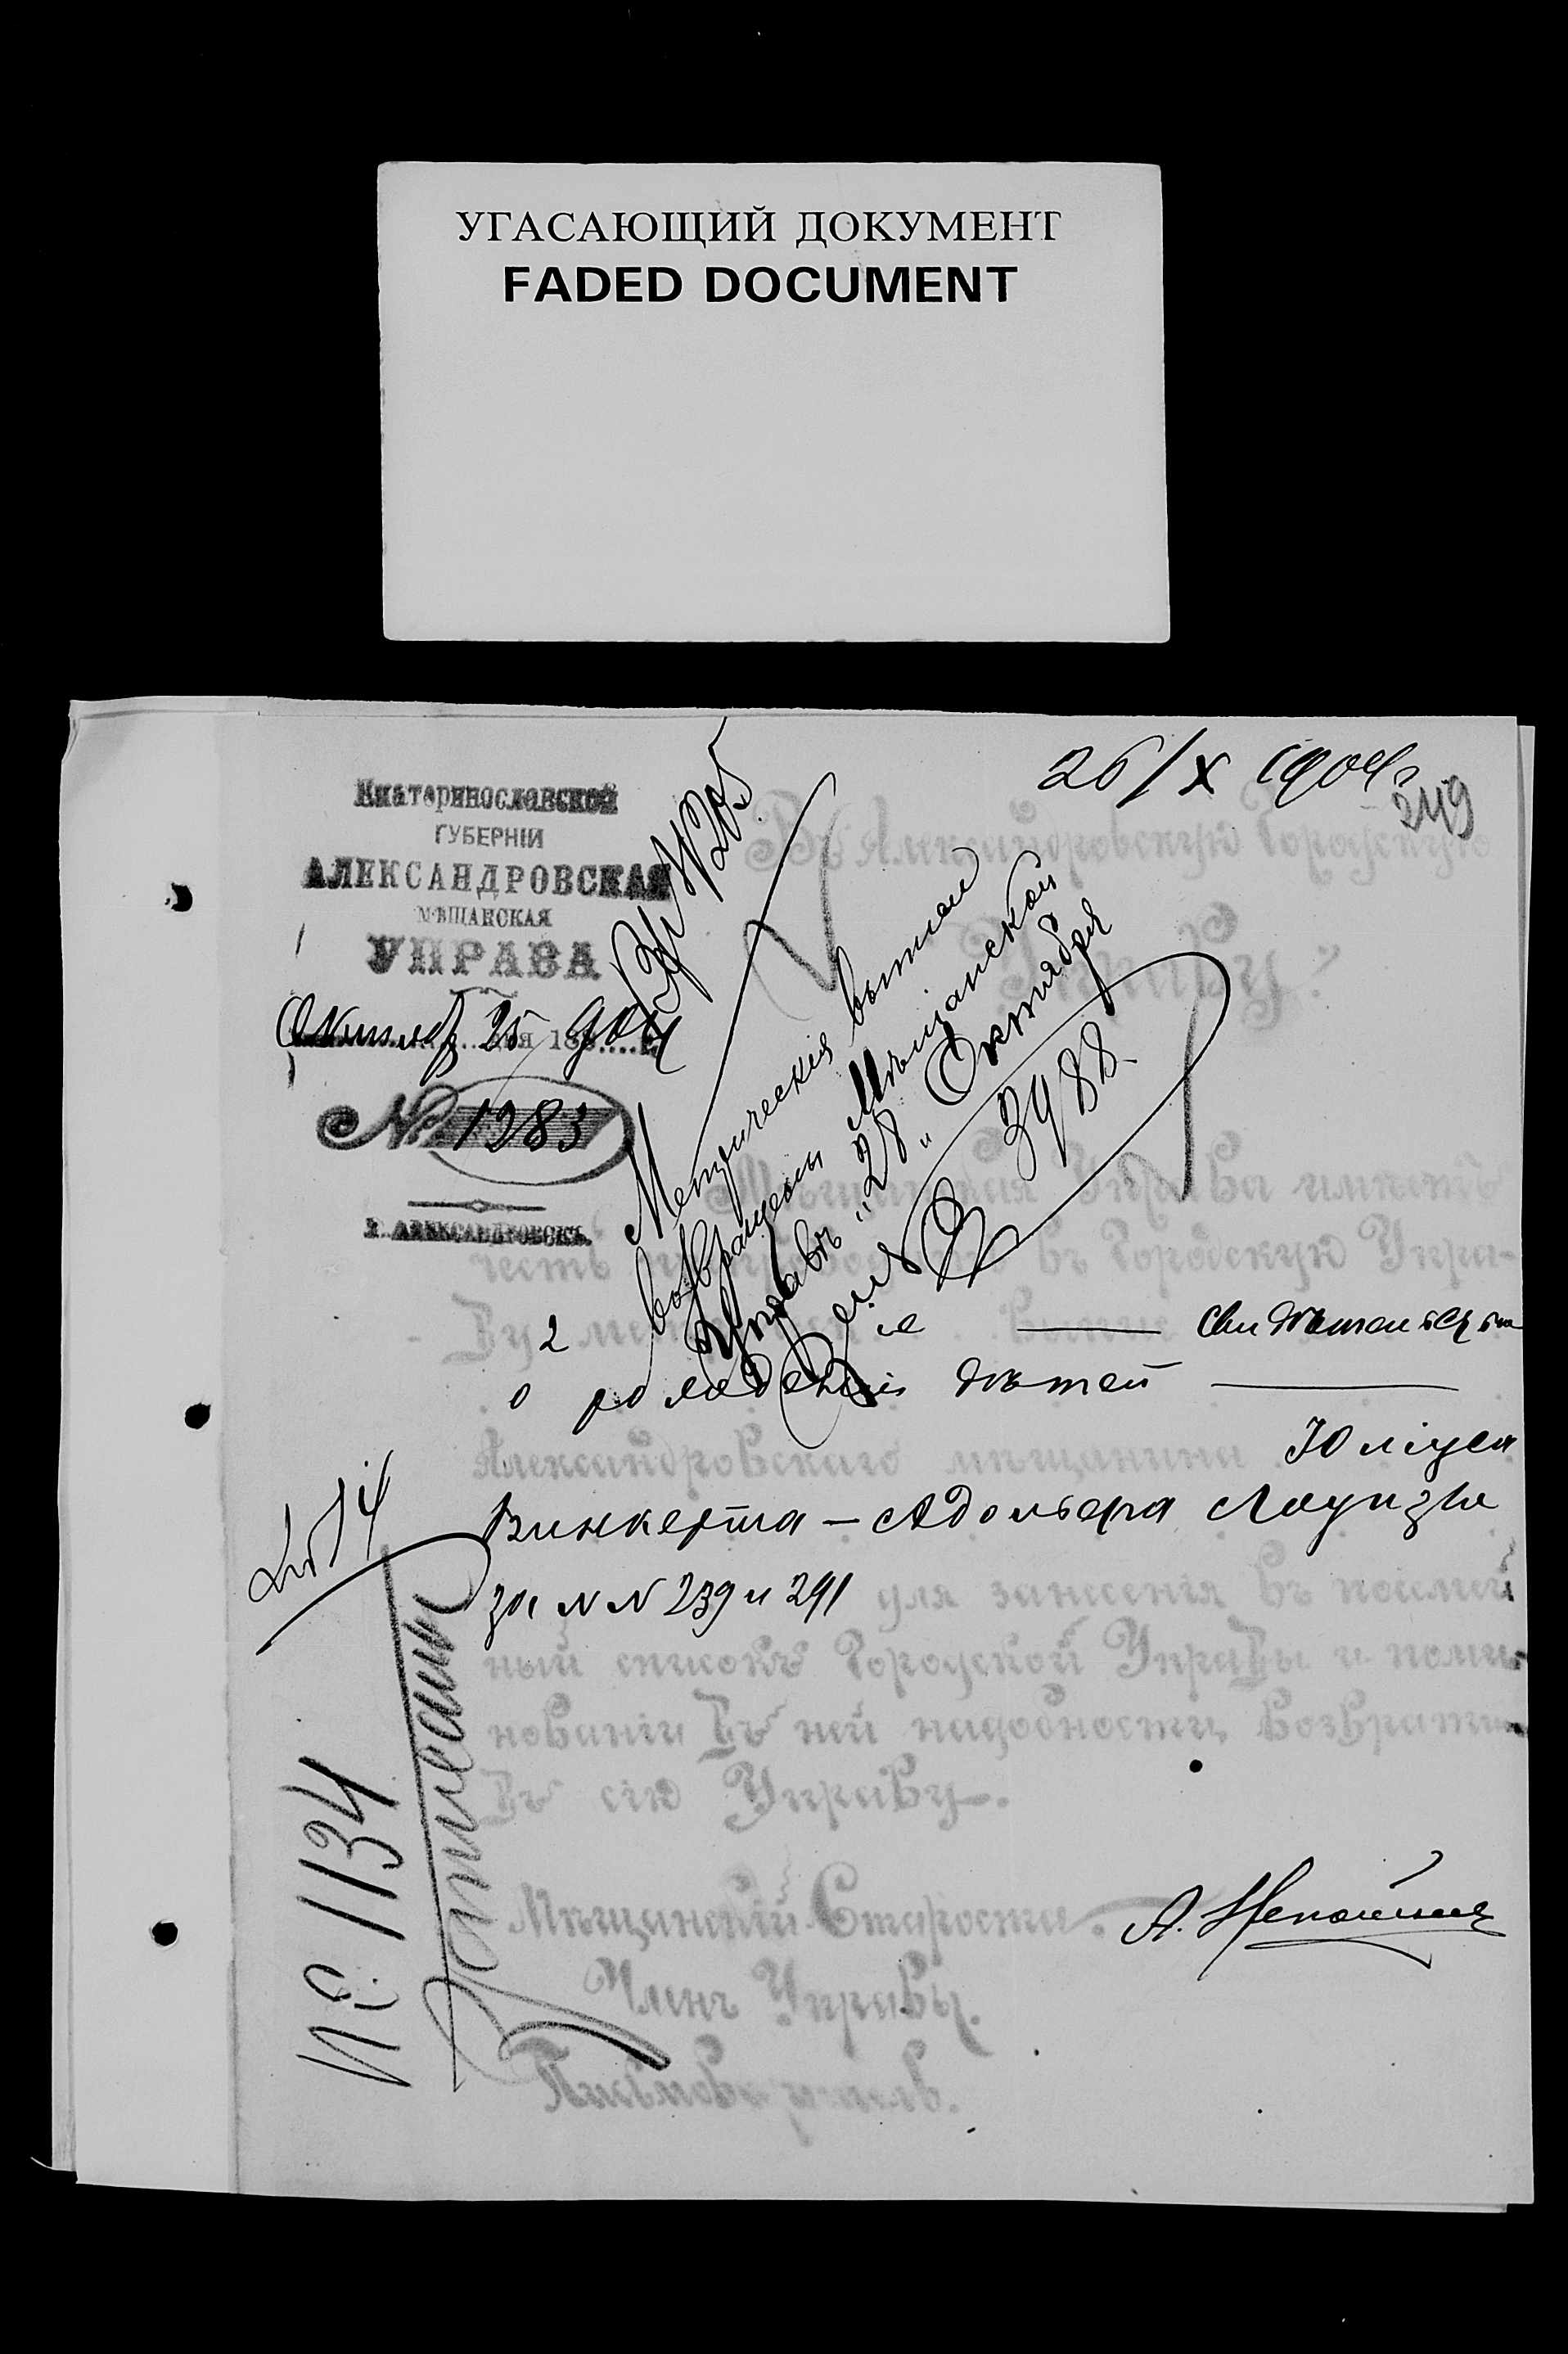 УГАСАЮЩИЙ ДОКУМЕНТ
FADED DOCUMENT
26/X 1904 г.
249
Екатеринославской
ГУБЕРНІИ
АЛЕКСАНДРОВСКАЯ
МѢЩАНСКАЯ
УПРАВА
Октября 25 дня 1904 г.
№ 1283
Г. АЛЕКСАНДРОВСКЪ.
№ 205
Въ Александровскую Городскую
Управу.
Метрическія выписи
возвращены Мѣщанской
Управѣ „28" Октября
3988
Мѣщанская Управа имѣетъ
честь въ Городскую Упра-
ву 2 свидѣтельства
о рожденіи дѣтей
Александровскаго мѣщанина Юліуса
Винкерта – Адольфа Лоуизы
за №№ 239 и 291 для занесенія въ посемей
ный списокъ Городской Управы и по мин
нованіи въ ней надобности, возвратить
въ сію Управу.
№ 1134
Мѣщанскій Староста
Членъ Управы.
Письмоводитель.